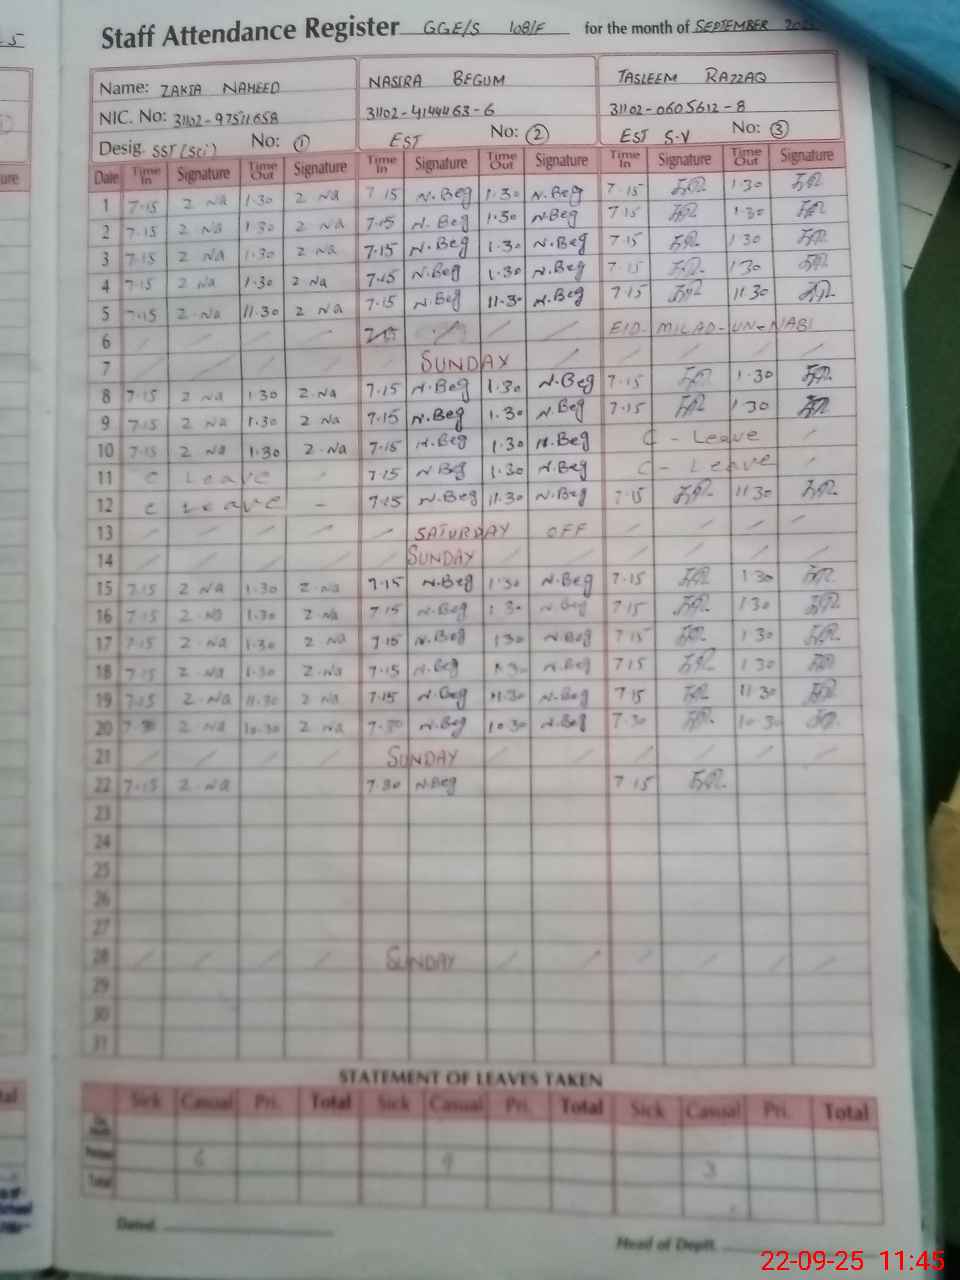 Staff Attendance Register GGE/S 108/F for the month of SEPTEMBER
Name: ZAKIA NAHEED NASIRA BEGUM TASLEEM RAZZAQ
NIC. No: 31102-97511658 31102-4144463-6 31102-0605612-8
Desig. SST (Sci) No: 1 EST No: 2 EST S-V No: 3
Date Time In Signature Time Out Signature Time In Signature Time Out Signature Time In Signature Time Out Signature
1 7.15 2 Na 1.30 2 Na 7.15 N.Beg 1.30 N.Beg 7.15 1.30
2 7.15 2 Na 1.30 2 Na 7.15 N.Beg 1.30 N.Beg 7.15 1.30
3 7.15 2 Na 1.30 2 Na 7.15 N.Beg 1.30 N.Beg 7.15 1.30
4 7.15 2 Na 1.30 2 Na 7.15 N.Beg 1.30 N.Beg 7.15 1.30
5 7.15 2.Na 11.30 2 Na 7.15 N.Beg 11.30 N.Beg 7.15 11.30
6 / / / / 7.15 / / / EID-MILAD-UN-NABI
7 / / / / SUNDAY / / / / /
8 7.15 2 Na 1.30 2.Na 7.15 N.Beg 1.30 N.Beg 7.15 1.30
9 7.15 2 Na 1.30 2 Na 7.15 N.Beg 1.30 N.Beg 7.15 1.30
10 7.15 2 Na 1.30 2.Na 7.15 N.Beg 1.30 N.Beg C - Leave /
11 C Leave - 7.15 N.Beg 1.30 N.Beg C - Leave /
12 C Leave - 7.15 N.Beg 11.30 N.Beg 7.15 11.30
13 / / / / / SATURDAY OFF / / / /
14 / / / / / SUNDAY / / / / / /
15 7.15 2 Na 1.30 2.Na 7.15 N.Beg 1.30 N.Beg 7.15 1.30
16 7.15 2.Na 1.30 2.Na 7.15 N.Beg 1.30 N.Beg 7.15 1.30
17 7.15 2.Na 1.30 2.Na 7.15 N.Beg 1.30 N.Beg 7.15 1.30
18 7.15 2.Na 1.30 2.Na 7.15 N.Beg 1.30 N.Beg 7.15 1.30
19 7.15 2.Na 11.30 2 Na 7.15 N.Beg 11.30 N.Beg 7.15 11.30
20 7.30 2 Na 10.30 2 Na 7.30 N.Beg 10.30 N.Beg 7.30 10.30
21 / / / / SUNDAY / / / / / /
22 7.15 2.Na 7.30 N.Beg 7.15
23
24
25
26
27
28 / / / / SUNDAY / / / / / /
29
30
31
STATEMENT OF LEAVES TAKEN
Sick Casual Pri. Total Sick Casual Pri. Total Sick Casual Pri. Total
6 9 3
Total
Dated.
Head of Deptt.
22-09-25 11:45